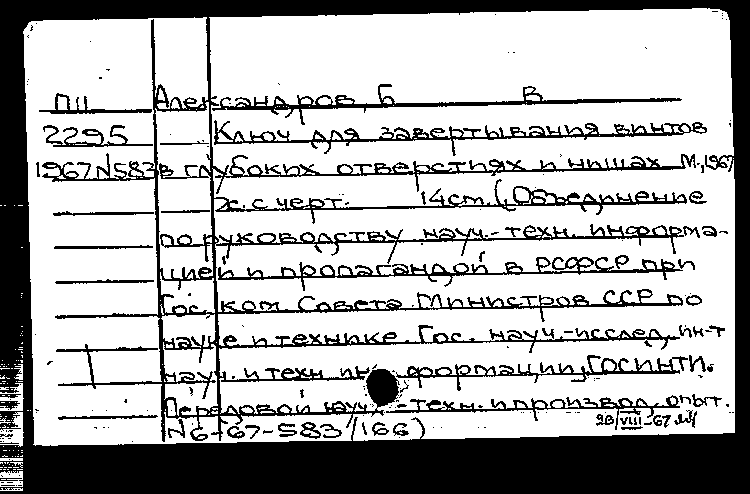 П11 Александров, Б В
2295 Ключ для завертывания винтов
1967 N583 в глубоких отверстиях и нишах М., 1967
ж. с черт. 14 см. (Объединение
по руководству науч.-техн. информа-
цией и пропагандой в РСФСР при
Гос. ком. Совета Министров ССР по
науке и технике. Гос. науч.-исслед. ин-т
науч. и техн. информации, ГОСИНТИ.
Передовой науч.-техн. и производ. опыт.
N 6-67-583/166)
28/VIII-67